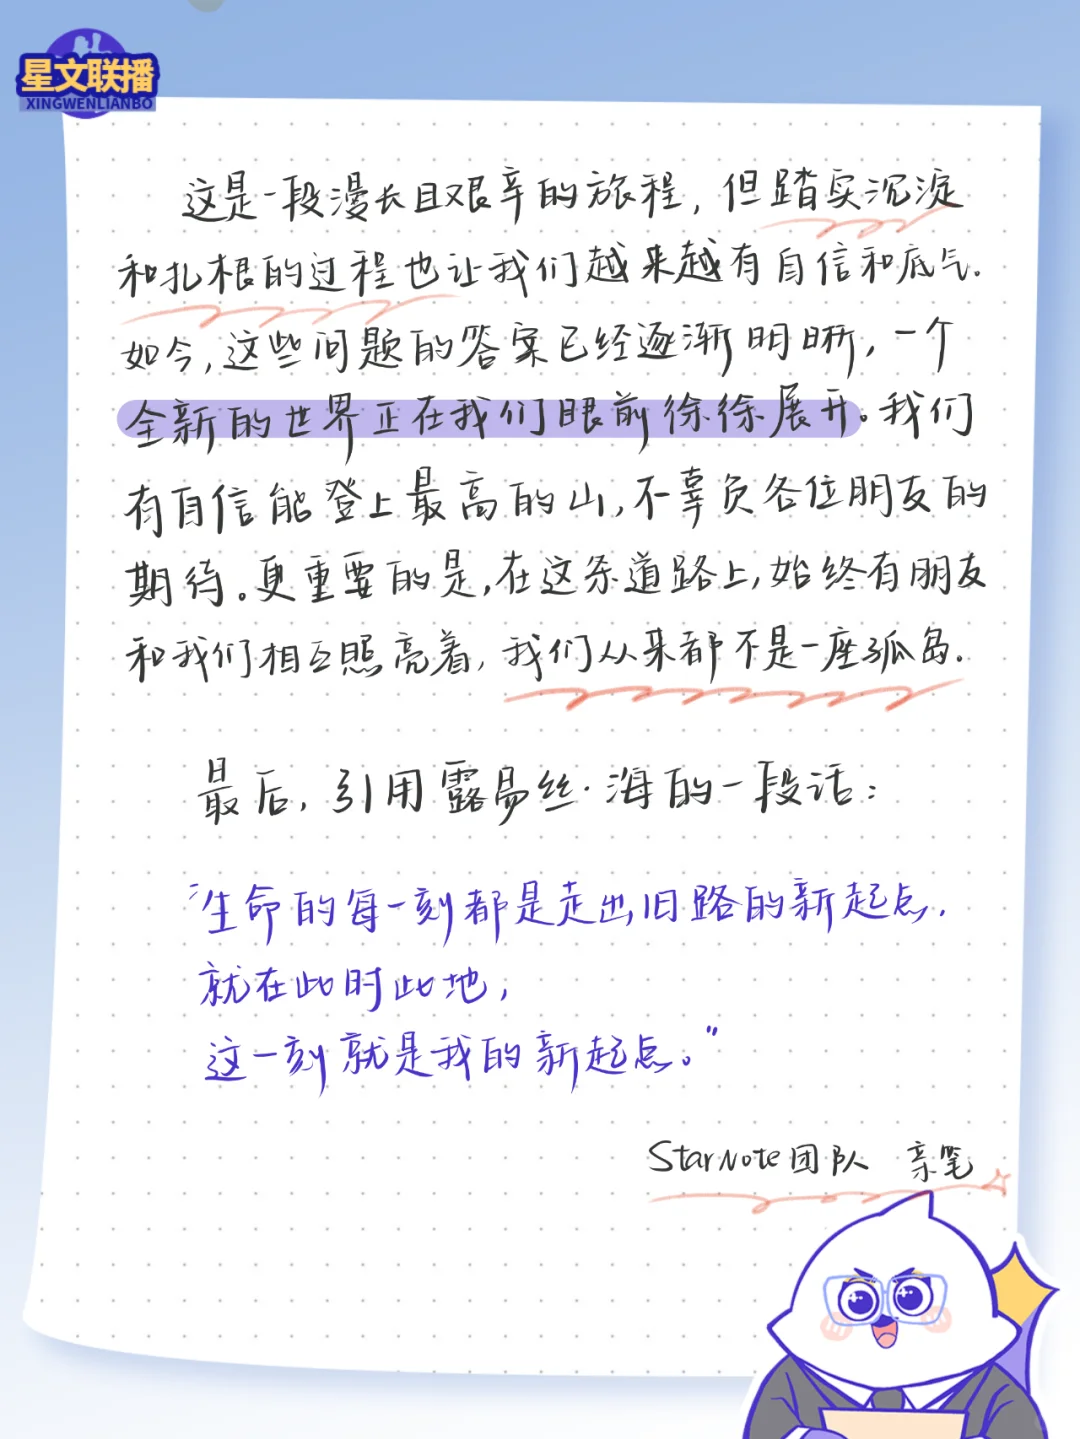 星文联播
XINGWENLIANBO
这是一段漫长且艰辛的旅程，但踏实沉淀
和扎根的过程也让我们越来越有自信和底气.
如今，这些问题的答案已经逐渐明晰，一个
全新的世界正在我们眼前徐徐展开。我们
有自信能登上最高的山，不辜负各位朋友的
期待。更重要的是，在这条道路上，始终有朋友
和我们相互照亮着，我们从来都不是一座孤岛.
最后，引用露易丝·海的一段话：
“生命的每一刻都是走出旧路的新起点.
就在此时此地，
这一刻就是我的新起点。”
StarNote团队 亲笔